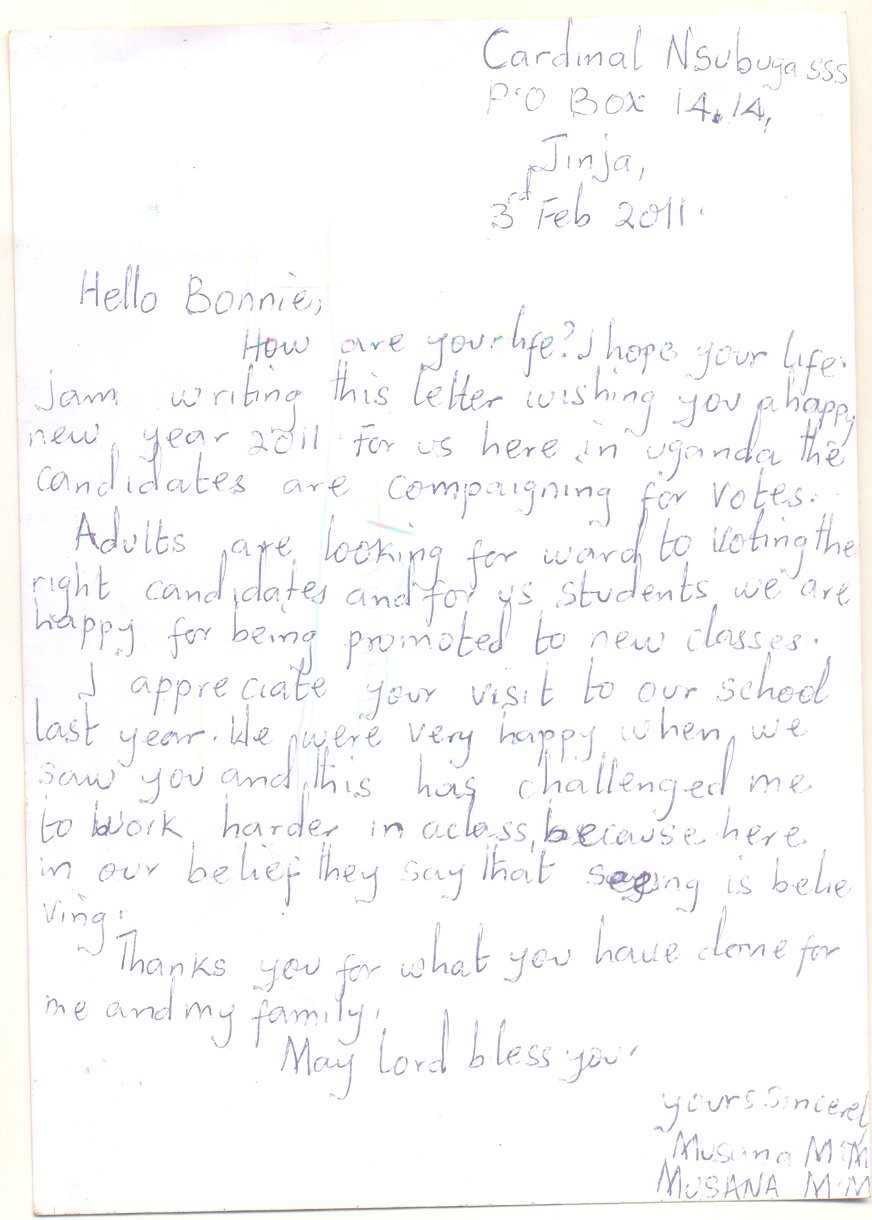 Cardinal Nsubuga SSS
P.O Box 14.14,
Jinja,
3rd Feb 2011.
Hello Bonnie,
How are your life? I hope your life.
I am writing this letter wishing you a happy
new year 2011. For us here in uganda the
candidates are compaigning for votes.
Adults are looking for ward to Voting the
right candidates and for us students we are
happy for being promoted to new classes.
I appreciate your visit to our school
last year. We were very happy when we
saw you and this has challenged me
to work harder in aclass, because here
in our belief they say that seeing is belie
ving.
Thanks you for what you have done for
me and my family.
May lord bless you.
yours Sincerel
Musana M.M
MUSANA M.M